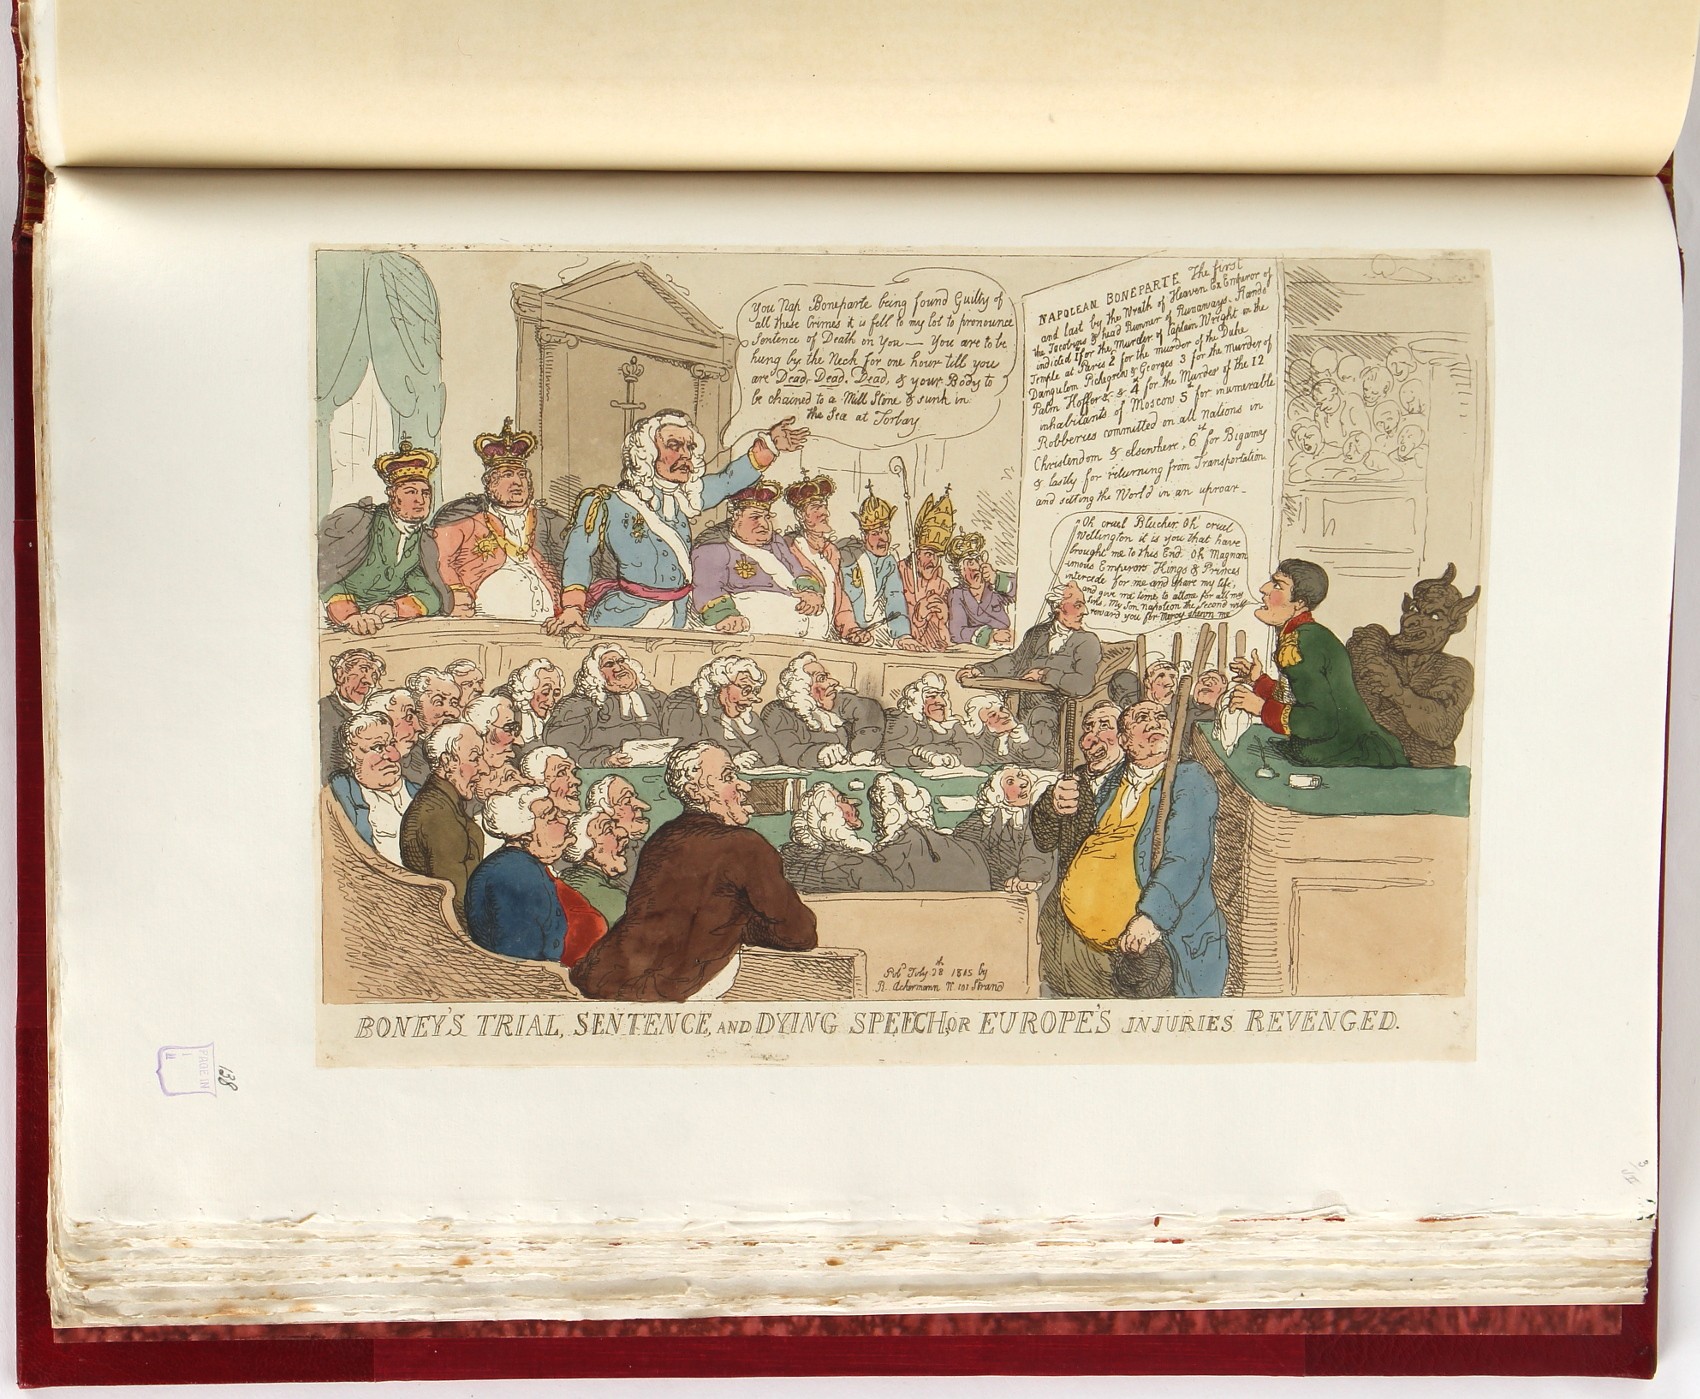 You Nap Boneparte being found Guilty of
all these Crimes it is fell to my lot to pronounce
Sentence of Death on You — You are to be
hung by the Neck for one hour till you
are Dead. Dead. Dead, & your Body to
be chained to a Mill Stone & sunk in
the Sea at Torbay
NAPOLEAN BONEPARTE The first
and last by the Wrath of Heaven Ex Emperor of
the Jacobins & head Runner of Runaways. Stands
indicted 1st for the Murder of Captain Wright in the
Temple at Paris 2 for the murder of the Duke
Dangulem Pichegrew & Georges 3 for the Murder of
Palm Hoffer &c &c 4 for the Murder of the 12
inhabitants of Moscow 5 for inumerable
Robberies committed on all Nations in
Christendom & elsewhere, 6th for Bigamy
& lastly for returning from Transportation
and setting the World in an uproar —
Oh cruel Blucher Oh' cruel
Wellington it is you that have
brought me to this End. Oh Magnan
imous Emperors Kings & Princes
intercede for me and spare my life,
and give me time to attone for all my
Sins, My Son Napoleon the Second will
reward you for Mercy shewn me
Pubd July 28th 1815 by
R. Ackermann No 101 Strand
BONEY'S TRIAL, SENTENCE, AND DYING SPEECH, OR EUROPE'S INJURIES REVENGED.
PAGE IN
138